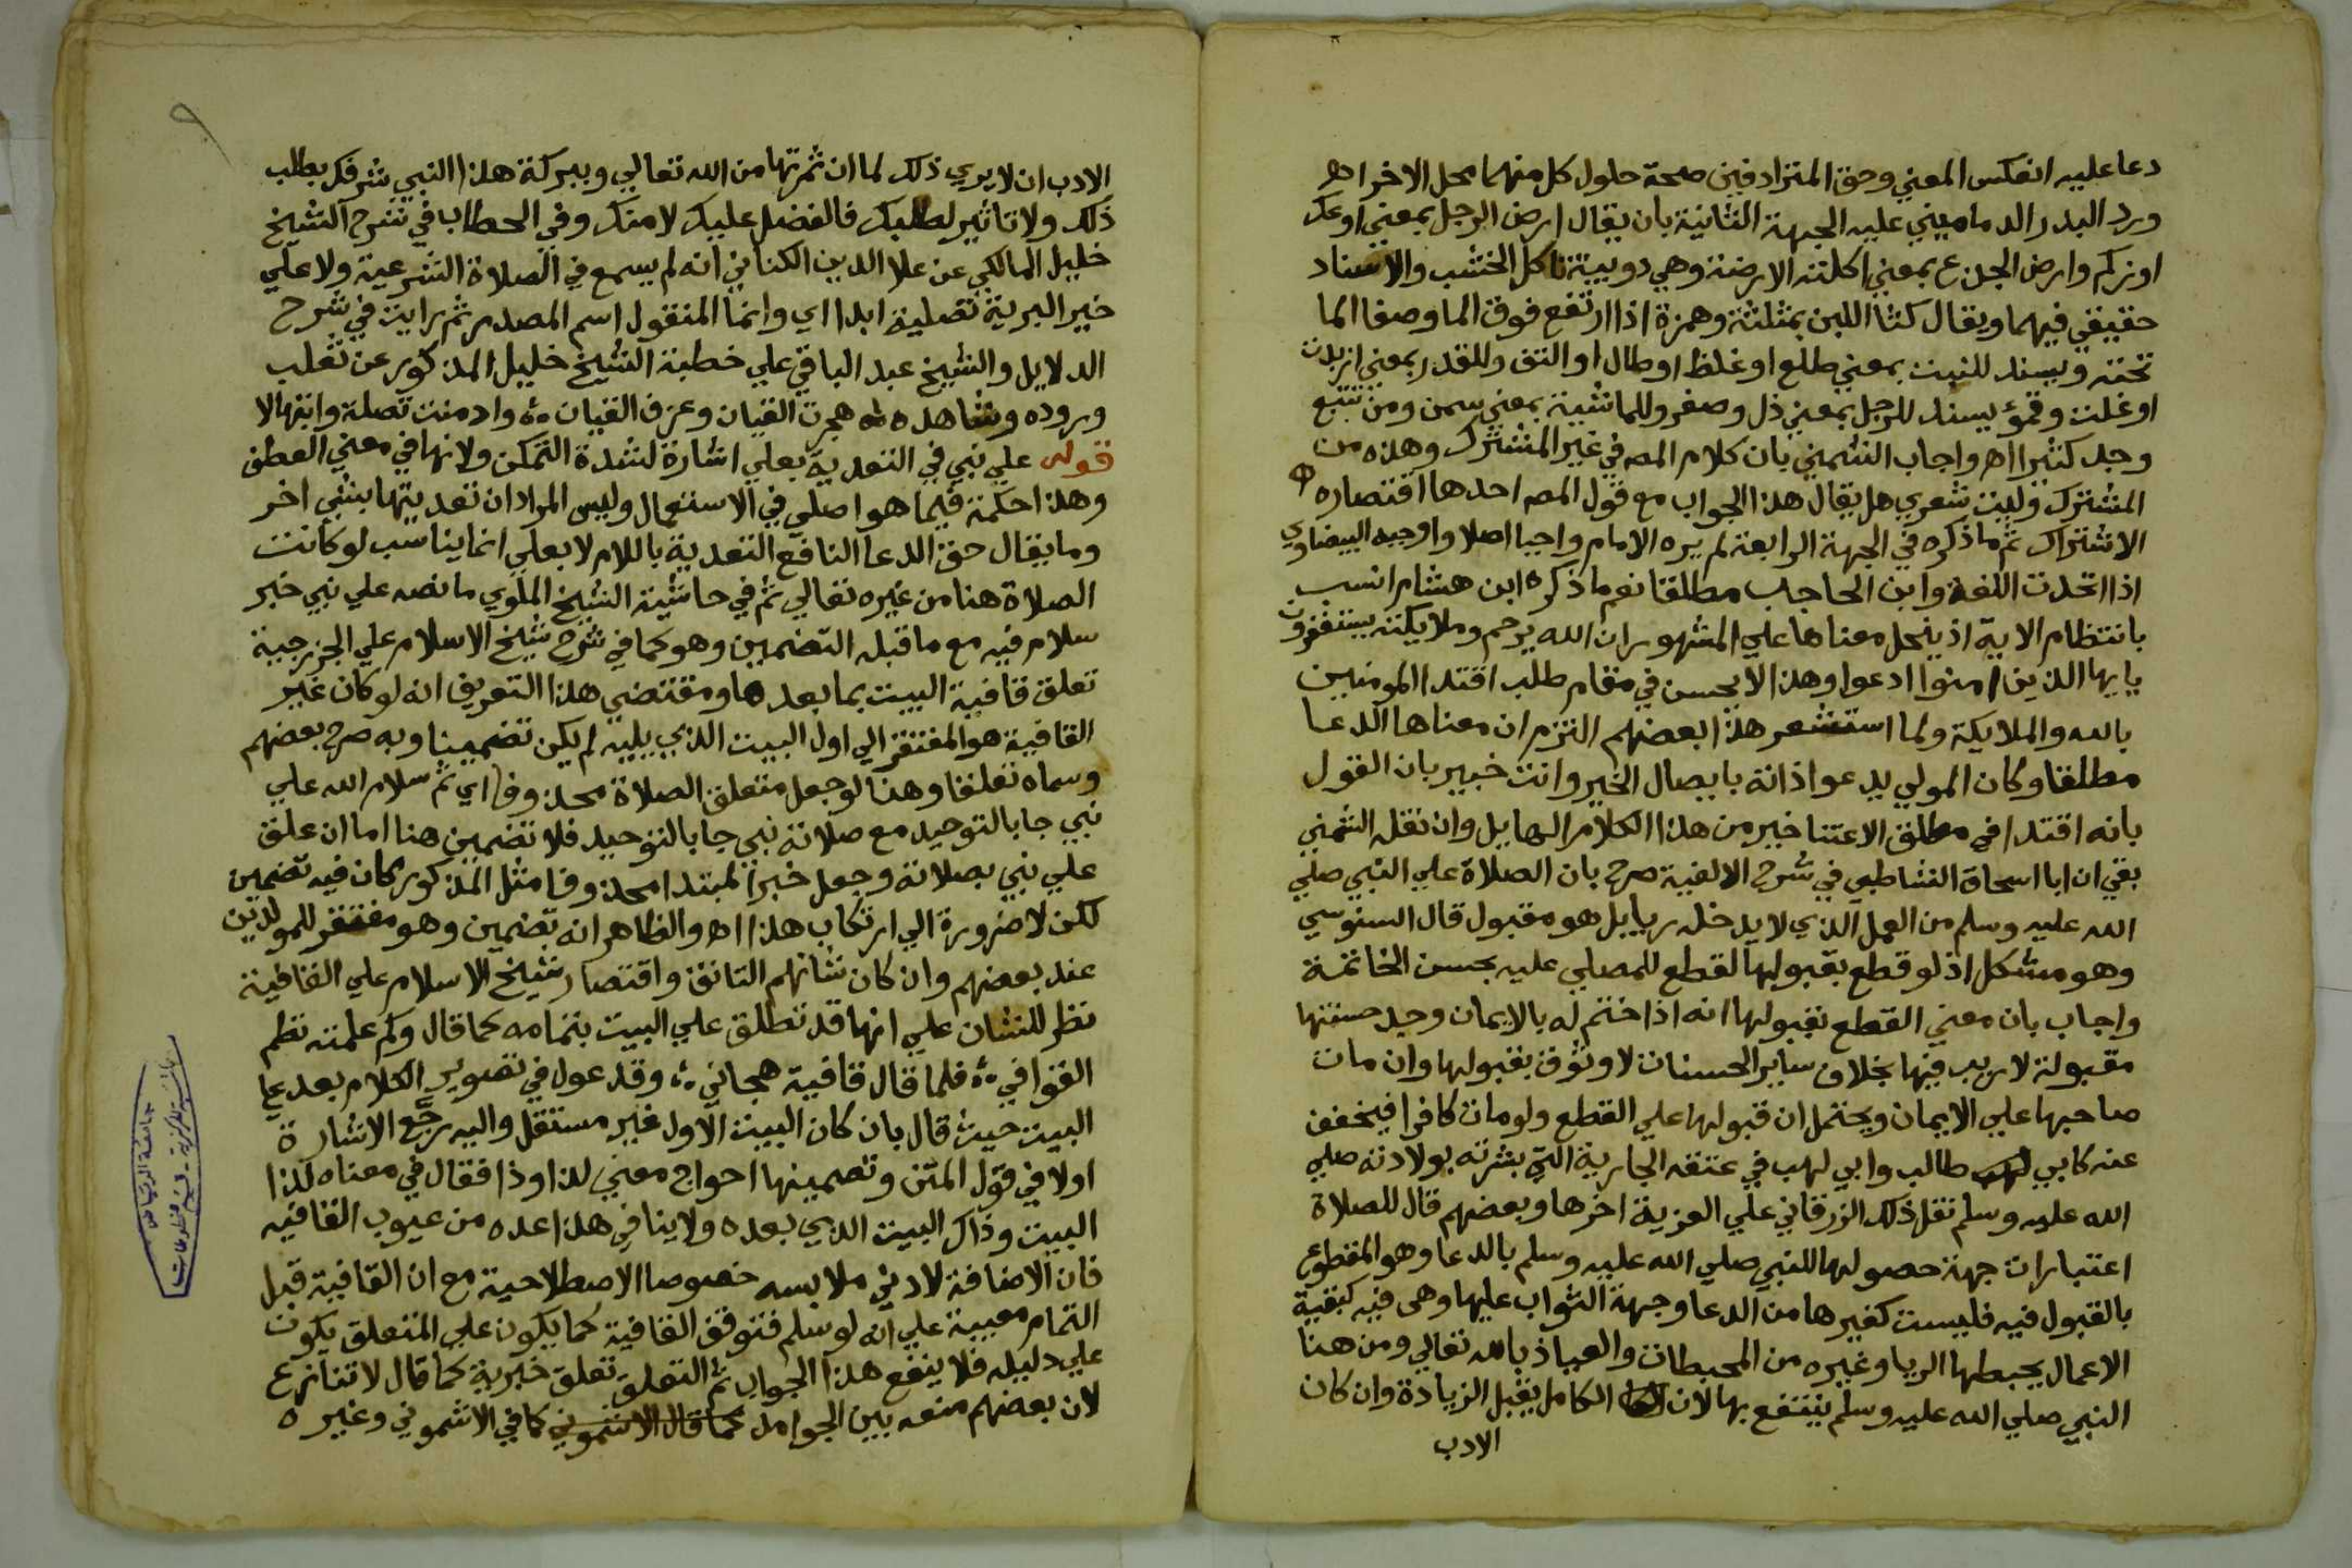 دعا عليه انعكس المعني وحق المترادفين صحة حلول كل منهما محل الاخر اهـ
ورد البدر الدماميني عليه الجهة الثانية بان يقال ارض الرجل بمعني اوعك
اوزكم وارض الجذع بمعني اكلته الارضة وهي دويبة تاكل الخشب والاسناد
حقيقي فيهما ويقال كثا اللبن بمثلثة وهمزة اذا ارتفع فوق الما وصفا الما
تحته ويسند للنبت بمعني طلع او غلظ او طال او التف وللقدر بمعني ازبدت
او غلت وقمؤ يسند للرجل بمعني ذل وصغر وللماشية بمعني سمن ومن تتبع
وجد كثيرا اهـ واجاب الشمني بان كلام المصـ في غير المشترك وهذه من
المشترك وليت شعري هل يقال هذا الجواب مع قول المصـ احدها اقتضاره
الاشتراك ثم ما ذكره في الجهة الرابعة لم يره الامام واجبا اصلا واوجبه البيضاوي
اذا اتحدت اللغة وابن الحاجب مطلقا نعم ما ذكره ابن هشام انسب
بانتظام الاية اذ ينحل معناها علي المشهور ان الله يرحم وملايكته يستغفرون
يايها الذين امنوا ادعوا وهذا لا يحسن في مقام طلب اقتدا المومنين
بالله والملايكة ولما استشعر هذا بعضهم التزم ان معناها الدعا
مطلقا وكان المولي يدعو اذاته بايصال الخير وانت خبير بان القول
بانه اقتدا في مطلق الاعتنا خير من هذا الكلام الهايل وان نقله الشمني
بقي ان ابا اسحاق الشاطبي في شرح الالفية صرح بان الصلاة علي النبي صلي
الله عليه وسلم من العمل الذي لا يدخله ريا بل هو مقبول قال السنوسي
وهو مشكل اذ لو قطع بقبولها لقطع للمصلي عليه بحسن الخاتمة
واجاب بان معني القطع بقبولها انه اذا ختم له بالايمان وجد حسنتها
مقبولة لا ريب فيها بخلاف ساير الحسنات لا وثوق بقبولها وان مات
صاحبها علي الايمان ويحتمل ان قبولها علي القطع ولو مات كافرا فيخفف
عنه كابي لهب طالب وابي لهب في عتقه الجارية التي بشرته بولادته صلي
الله عليه وسلم نقل ذلك الزرقاني علي العزية اخرها وبعضهم قال للصلاة
اعتبارات جهة حصولها للنبي صلي الله عليه وسلم بالدعا وهو المقطوع
بالقبول فيه فليست كغيرها من الدعا وجهة الثواب عليها وهي فيه كبقية
الاعمال يحبطها الريا وغيره من المحبطات والعياذ بالله تعالي ومن هنا
النبي صلي الله عليه وسلم ينتفع بها لان الكامل يقبل الزيادة وان كان
الادب
٩
الادب ان لا يري ذلك لما ان ثمرتها من الله تعالي وببركة هذا النبي شرفك بطلب
ذلك ولا تاثير لطلبك فالفضل عليك لا منك وفي الحطاب في شرح الشيخ
خليل المالكي عن علا الدين الكناني انه لم يسمع في الصلاة الشرعية ولا علي
خير البرية تصلية ابدا اي وانما المنقول اسم المصدر ثم رايت في شرح
الدلايل والشيخ عبد الباقي علي خطبة الشيخ خليل المذكور عن ثعلب
وروده وشاهده هجرت القيان وعزف القيان وادمنت تصلة وابتهالا
قوله علي نبي في التعدية بعلي اشارة لشدة التمكن ولانها في معني العطف
وهذا حكمة فيما هو اصلي في الاستعمال وليس المراد ان تعديتها بشي اخر
وما يقال حق الدعا النافع التعدية باللام لا بعلي انما يناسب لو كانت
الصلاة هنا من غيره تعالي ثم في حاشية الشيخ الملوي ما نصه علي نبي خبر
سلام فيه مع ما قبله التضمين وهو كما في شرح شيخ الاسلام علي الخزرجية
تعلق قافية البيت بما بعدها ومقتضي هذا التعريف انه لو كان غير
القافية هو المفتقر الي اول البيت الذي يليه لم يكن تضمينا وبه صرح بعضهم
وسماه تعلقا وهنا لو جعل متعلق الصلاة محذوفا اي ثم سلام الله علي
نبي جا بالتوحيد مع صلاته نبي جا بالتوحيد فلا تضمين هنا اما ان علق
علي نبي بصلاته وجعل خبرا لمبتدا محذوفا مثل المذكور كان فيه تضمين
لكن لا ضرورة الي ارتكاب هذا اهـ والظاهر انه تضمين وهو مغتفر للمولدين
عند بعضهم وان كان شانهم التانق واقتصار شيخ الاسلام علي القافية
نظر للشان علي انها قد تطلق علي البيت بتمامه كما قال وكم علمته نظم
القوافي فلما قال قافية هجاني وقد عول في تصوير الكلام بعد علي
البيت حيث قال بان كان البيت الاول غير مستقل واليه رجع الاشارة
اولا في قول المتن وتضمينها احواج معني لذا وذا فقال في معناه لذا
البيت وذاك البيت الذي بعده ولا ينافي هذا عده من عيوب القافيه
فان الاضافة لادني ملابسه خصوصا الاصطلاحية مع ان القافية قبل
التمام معيبة علي انه لو سلم فتوقف القافية كما يكون علي المتعلق يكون
علي دليله فلا ينفع هذا الجواب ثم التعلق تعلق خبرية كما قال لا تنازع
لان بعضهم منعه بين الجوامد كما قال الاشموني كما في الاشموني وغيره